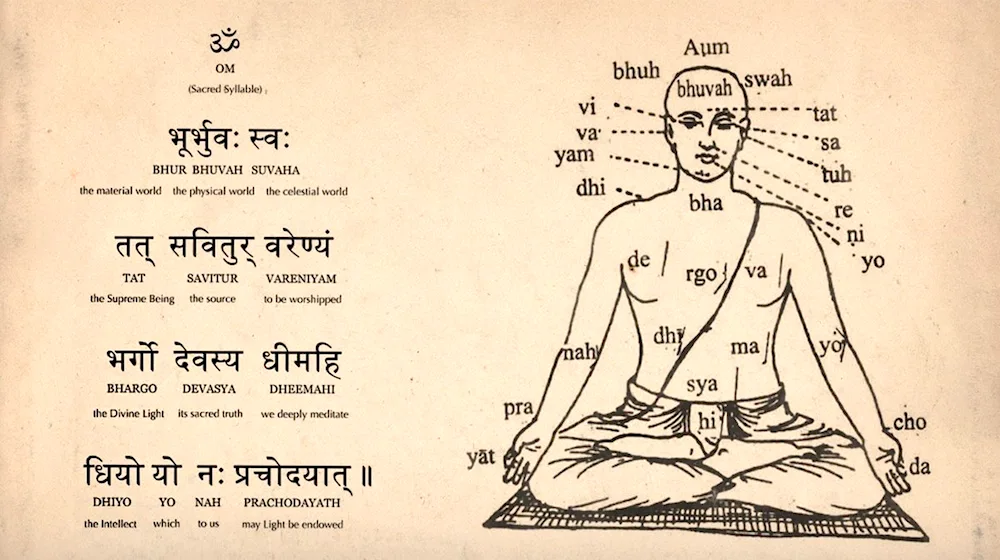 ॐ
OM
(Sacred Syllable)
भूर्भुवः स्वः
BHUR BHUVAH SUVAHA
the material world the physical world the celestial world
तत् सवितुर् वरेण्यं
TAT SAVITUR VARENIYAM
the Supreme Being the source to be worshipped
भर्गो देवस्य धीमहि
BHARGO DEVASYA DHEEMAHI
the Divine Light its sacred truth we deeply meditate
धियो यो नः प्रचोदयात् ॥
DHIYO YO NAH PRACHODAYATH
the Intellect which to us may Light be endowed
Aum
bhuh bhuvah swah
vi tat
va sa
yam tuh
dhi re
bha ni
yo
de rgo va
nah dhī ma yo
sya
pra hi cho
yāt da